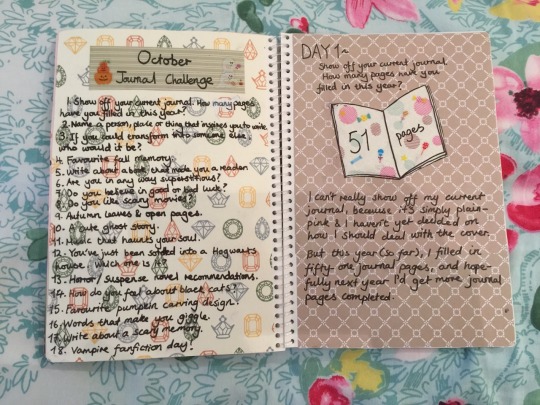 October
Journal Challenge
1. Show off your current journal. How many pages
have you filled in this year?
2. Name a person, place or thing that inspires you to write
3. If you could transform into someone else
who would it be?
4. Favourite fall memory.
5. Write about a book that made you a reader.
6. Are you in any way superstitious?
7. Do you believe in good or bad luck?
8. Do you like scary movies?
9. Autumn leaves & open pages.
10. A cute ghost story.
11. Music that haunts your soul.
12. You've just been sorted into a Hogwarts
house. Which one is it?
13. Horror/Suspense novel recommendations.
14. How do you feel about black cats?
15. Favourite pumpkin carving design.
16. Words that make you giggle.
17. Write about a scary memory.
18. Vampire fanfiction day!
DAY 1~
Show off your current journal.
How many pages have you
filled in this year?
51 pages
I can't really show off my current
journal, because it's simply plain-
pink & I haven't yet decided on
how I should deal with the cover.
But this year (so far), I filled in
fifty one journal pages, and hope-
fully next year I'd get more journal
pages completed.